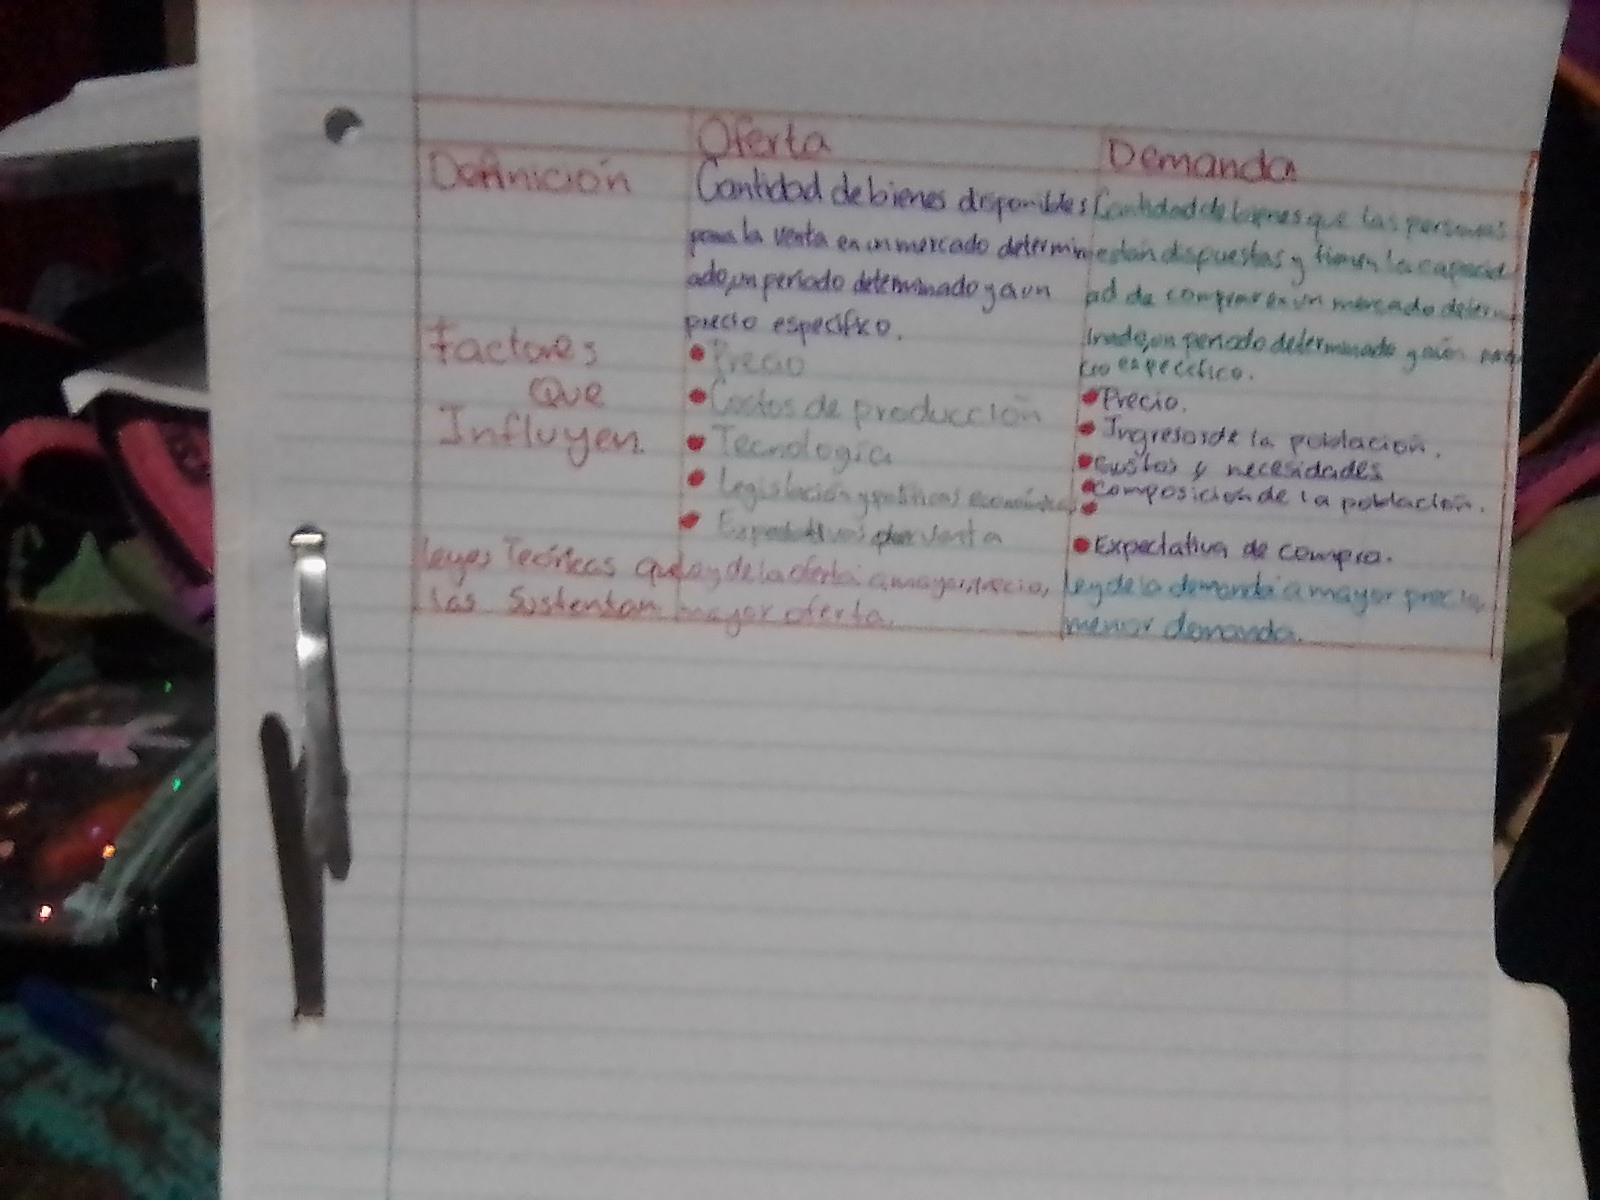 Oferta
Demanda
Definición
Cantidad de bienes disponibles
para la venta en un mercado determin
ado, un período determinado y a un
precio específico.
Cantidad de bienes que las personas
están dispuestas y tienen la capacid
ad de comprar en un mercado determ
inado, un periodo determinado y a un pre
cio específico.
Factores
Que
Influyen
Precio
Costos de producción
Tecnología
Legislación y políticas económicas
Expectativas venta
Precio.
Ingresos de la población.
Gustos y necesidades
Composición de la población.
Expectativa de compra.
Leyes Teóricas que
las Sustentan
Ley de la oferta: a mayor precio,
mayor oferta.
Ley de la demanda: a mayor precio,
menor demanda.